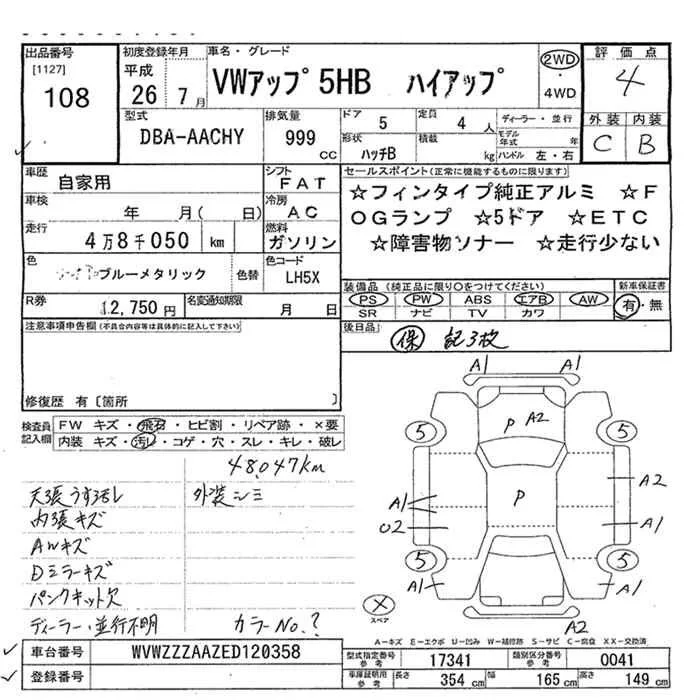 出品番号
[1127]
108
初度登録年月
平成
26 7月
車名・グレード
VWアップ 5HB ハイアップ
2WD
・
4WD
評価点
4
外装 内装
C B
型式
DBA-AACHY
排気量
999
CC
ドア 5
定員 4人
形状 ハッチB
積載 kg
ディーラー・並行
モデル年式 年
ハンドル 左・右
車歴 自家用
シフト FAT
車検 年 月( 日)
冷房 AC
走行 4万8千050 km
燃料 ガソリン
色 ブルーメタリック
色替
色コード LH5X
R券 12,750円
名変通知期限 月 日
セールスポイント(正常に機能するものに限ります)
☆フィンタイプ純正アルミ ☆F
OGランプ ☆5ドア ☆ETC
☆障害物ソナー ☆走行少ない
装備品(純正品に限り○をつけてください)
PS PW ABS エアB AW
SR ナビ TV カワ
新車保証書
有・無
後日品
保 記3枚
注意事項申告欄(不具合内容等は具体的に記入して下さい)
修復歴 有〔箇所 〕
検査員記入欄
FW キズ・飛石・ヒビ割・リペア跡・×要
内装 キズ・汚れ・コゲ・穴・スレ・キレ・破レ
48,047km
天張うす汚レ 外装シミ
内張キズ
AWキズ
Dミラーキズ
パンクキット欠
ディーラー・並行不明 カラーNo.?
A1 A1
P A2
5 5
A1 P A2
O2 A1
5 5
A1 A1
×
スペア
A2
A-キズ E-エクボ U-凹み W-補修跡 S-サビ C-腐食 XX-交換済
車台番号 WVWZZZAAZED120358
登録番号
型式指定番号 参考 17341
類別区分番号 参考 0041
車庫証明用 参考 長さ 354 cm 幅 165 cm 高さ 149 cm